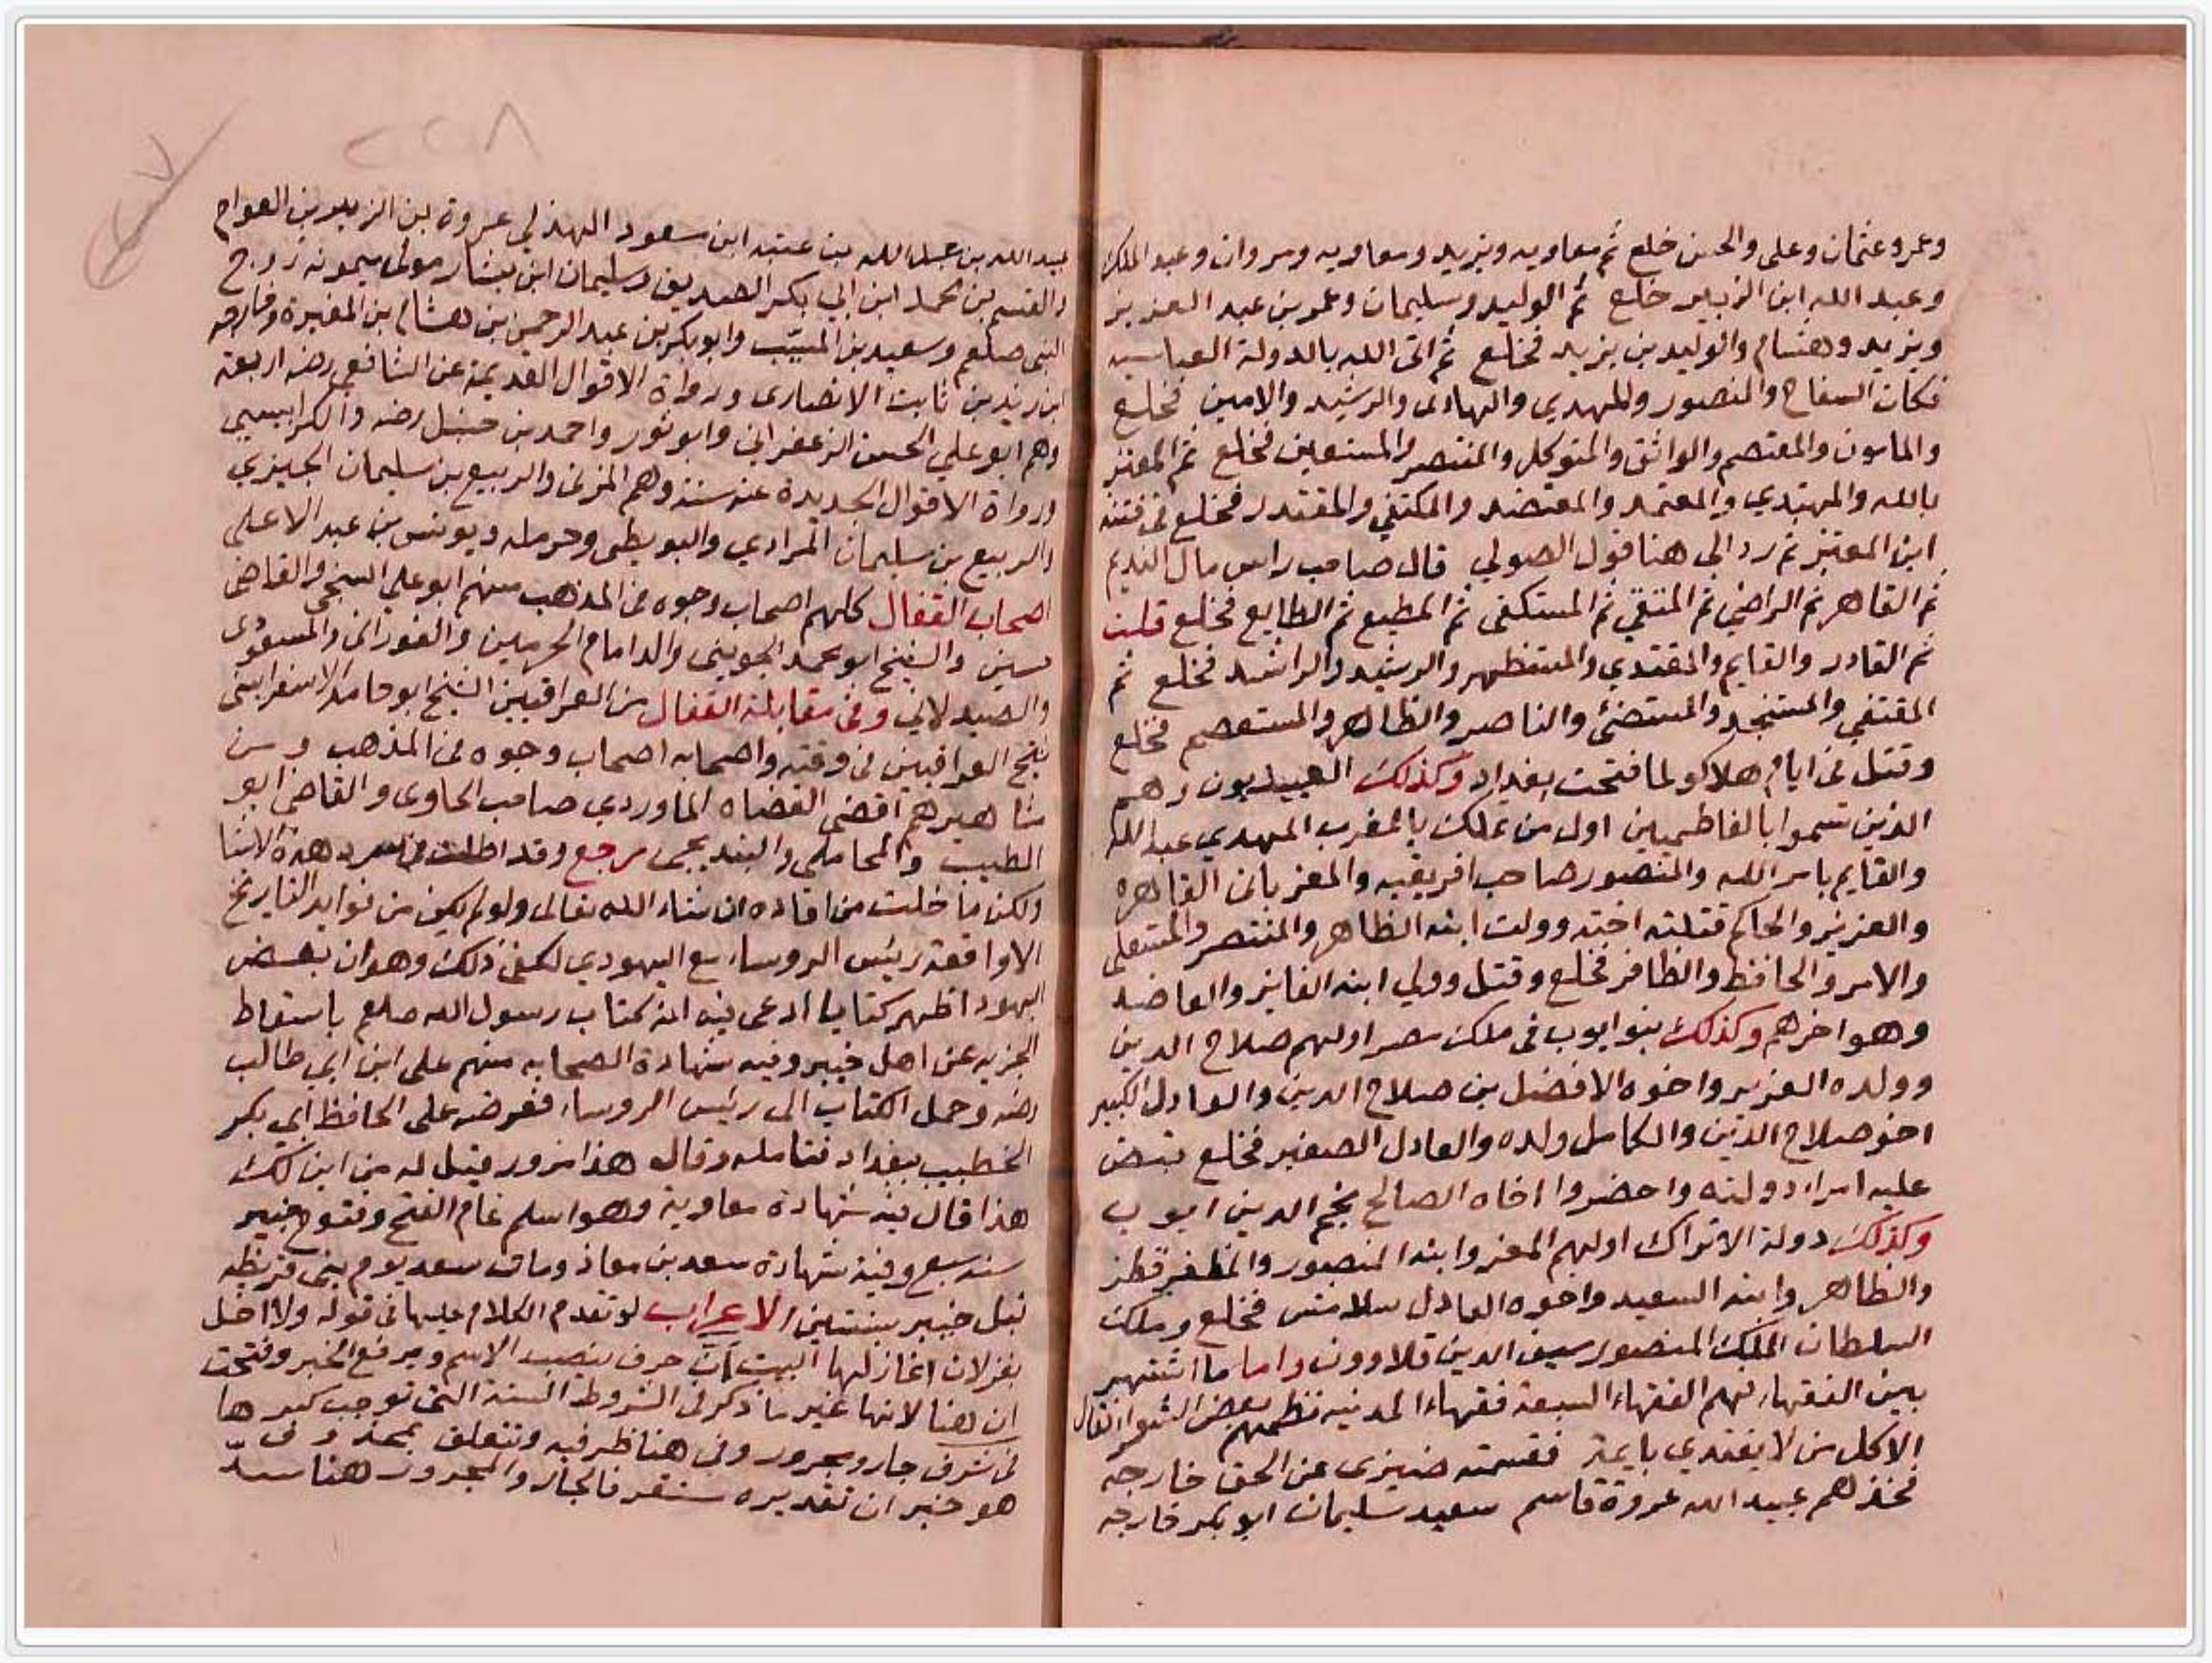 وعمر وعثمان وعلى والحسن خلع ثم معاويه ويزيد ومعاويه ومروان وعبد الملك
وعبد الله ابن الزبير خلع ثم الوليد وسليمان وعمر بن عبد العزيز
ويزيد وهشام والوليد بن يزيد فخلع ثم اتى الله بالدولة العباسيه
فكان السفاح والمنصور والمهدي والهادى والرشيد والامين فخلع
والمامون والمعتصم والواثق والمتوكل والمنتصر والمستعين فخلع ثم المعتز
بالله والمهتدي والمعتمد والمعتضد والمكتفي والمقتدر فخلع فى فتنه
ابن المعتز ثم رد الى هنا قول الصولي قال صاحب راس مال النديم
ثم القاهر ثم الراضي ثم المتقي ثم المستكفى ثم المطيع ثم الطايع فخلع قلت
ثم القادر والقايم والمقتدي والمستظهر والرشيد والراشد فخلع ثم
المقتفي والمستنجد والمستضئ والناصر والظاهر والمستعصم فخلع
وقتل فى ايام هلاكو لما فتحت بغداد وكذلك العبيديون وهم
الذين تسموا بالفاطميين اول من ملك بالمغرب المهدي عبد الله
والقايم بامر الله والمنصور صاحب افريقيه والمعز بانى القاهره
والعزيز والحاكم قتلته اخته وولت ابنه الظاهر والمنتصر والمستعلى
والامر والحافظ والظافر فخلع وقتل وولي ابنه الفايز والعاضد
وهو اخرهم وكذلك بنو ايوب فى ملك مصر اولهم صلاح الدين
وولده العزيز واخوه الافضل بن صلاح الدين والعادل الكبير
اخو صلاح الدين والكامل ولده والعادل الصغير فخلع قبض
عليه امراء دولته واحضروا اخاه الصالح نجم الدين ايوب
وكذلك دولة الاتراك اولهم المعز وابنه المنصور والمظفر قطز
والظاهر وابنه السعيد واخوه العادل سلامش فخلع وملك
السلطان الملك المنصور سيف الدين قلاوون واما ما اشتهر
بين الفقهاء فهم الفقهاء السبعة فقهاء المدينه نظمهم بعض الشعراء فقال
الا كل من لا يقتدي بايمة فقسمته ضيزى عن الحق خارجه
فخذهم عبيد الله عروة قاسم سعيد سليمان ابو بكر خارجه
٢٢٨
عبيد الله بن عبد الله بن عتبه ابن مسعود الهذلي عروة بن الزبير بن العوام
والقسم بن محمد ابن ابي بكر الصديق وسليمان ابن يسار مولى ميمونه زوج
النبى صلعم وسعيد بن المسيّب وابو بكر بن عبد الرحمن بن هشام بن المغيرة وخارجه
ابن زيد بن ثابت الانصارى ورواة الاقوال القديمة عن الشافعي رضه اربعة
وهم ابو علي الحسن الزعفراني وابو ثور واحمد بن حنبل رضه والكرابيسي
ورواة الاقوال الجديدة عنه ستة وهم المزنى والربيع بن سليمان الجيزي
والربيع بن سليمان المرادي والبويطى وحرمله ويونس بن عبد الاعلى
اصحاب القفال كلهم اصحاب وجوه فى المذهب منهم ابو علي السنجي والقاضى
حسين والشيخ ابو محمد الجوينى والد امام الحرمين والفورانى والمسعودى
والصيدلانى وفى مقابلة القفال من العراقيين الشيخ ابو حامد الاسفراينى
شيخ العراقيين فى وقته واصحابه اصحاب وجوه فى المذهب ومن
مشاهيرهم اقضى القضاه الماوردي صاحب الحاوى والقاضى ابو
الطيب والمحاملى والبنديجى مرجع وقد اطلت فى سرد هذه الاشيا
ولكن ما خلت من افاده ان شاء الله تعالى ولو لم يكن من فوايد التاريخ
الا واقعة رئيس الروساء مع اليهودي لكفى ذلك وهو ان بعض
اليهود اظهر كتابا ادعى فيه انه كتاب رسول الله صلعم باسقاط
الجزيه عن اهل خيبر وفيه شهادة الصحابه منهم على ابن ابي طالب
رضه وحمل الكتاب الى رئيس الروساء فعرضه على الحافظ ابي بكر
الخطيب ببغداد فتامله وقال هذا مزور فقيل له من اين لك
هذا قال فيه شهادة معاوية وهو اسلم عام الفتح وفتوح خيبر
سنه سبع وفيه شهادة سعد بن معاذ ومات سعد يوم بنى قريظه
قبل خيبر بسنتين الاعراب لو تقدم الكلام عليها فى قوله ولا اخل
بغزلان اغازلها البيت ان حرف ينصب الاسم ويرفع الخبر وفتحت
ان هنا لانها غير ما ذكر فى الشروط الستة التى توجب كسرها
فى شرف جار ومجرور وفى هنا ظرفيه وتتعلق بمحذوف
هو خبر ان تقديره مستقر فالجار والمجرور هنا سدّ